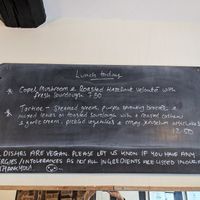 Lunch today
Mushroom & Roasted Hazelnut velouté with
fresh sourdough 7.50
Tartine - Steamed greens, purple sprouting broccoli &
mixed leaves on toasted sourdough with a roasted cashew
& garlic cream, pickled vegetables & crispy
12.50
DISHES ARE VEGAN. PLEASE LET US KNOW IF YOU HAVE ANY
/INTOLERANCES AS NOT ALL INGREDIENTS ARE LISTED
THANK YOU!